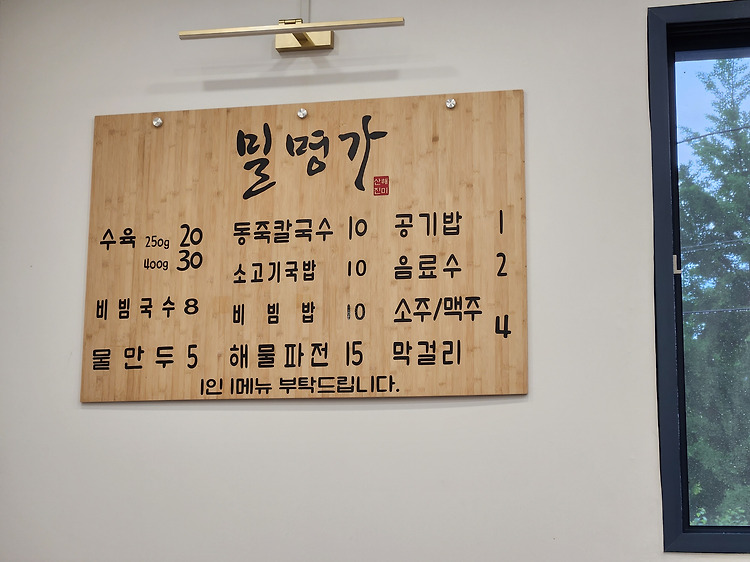 밀명가
산해
진미
수육 250g 20
400g 30
비빔국수 8
물만두 5
동죽칼국수 10
소고기국밥 10
비빔밥 10
해물파전 15
공기밥 1
음료수 2
소주/맥주
막걸리 4
1인 1메뉴 부탁드립니다.